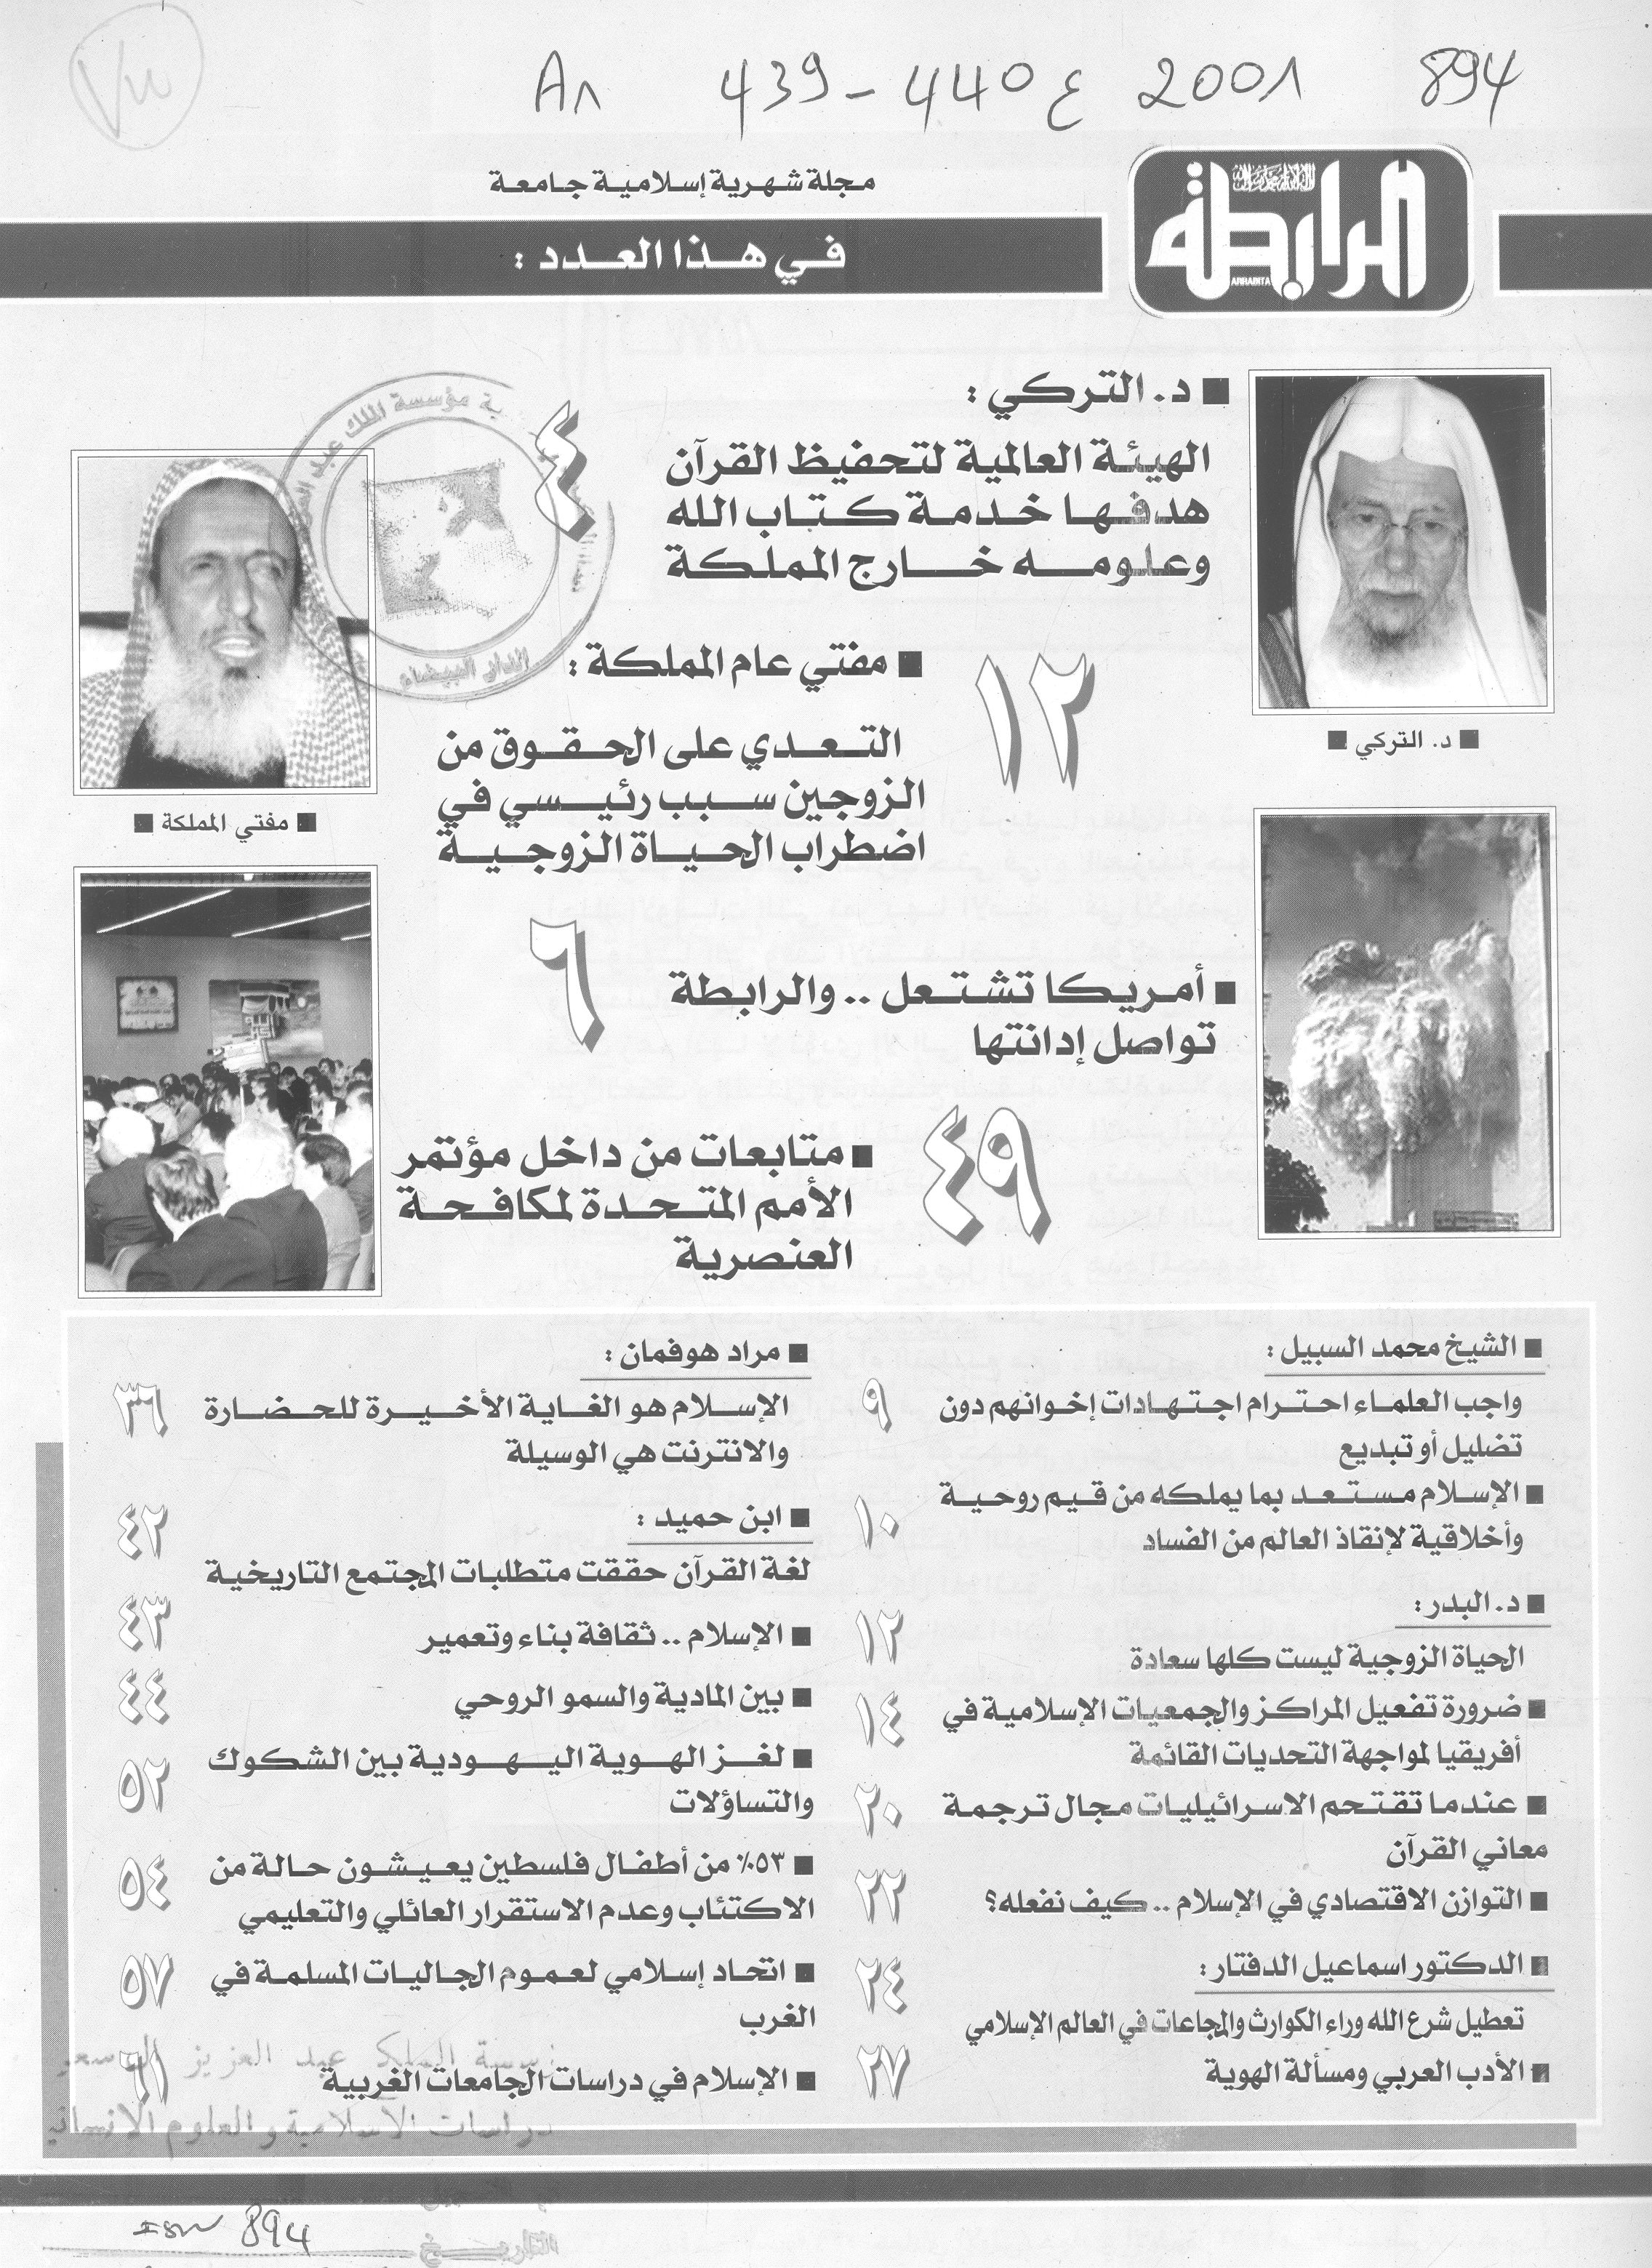 An 439-440 ع 2001 894
مجلة شهرية إسلامية جامعة
الرابطة
ARRABITA
في هذا العدد :
■ د. التركي :
٤
الهيئة العالمية لتحفيظ القرآن
هدفها خدمة كتاب الله
وعلومه خارج المملكة
■ د. التركي ■
■ مفتي عام المملكة :
١٢
التعدي على الحقوق من
الزوجين سبب رئيسي في
اضطراب الحياة الزوجية
■ مفتي المملكة ■
■ أمريكا تشتعل .. والرابطة
تواصل إدانتها
٦
■ متابعات من داخل مؤتمر
الأمم المتحدة لمكافحة
العنصرية
٤٩
■ الشيخ محمد السبيل :
واجب العلماء احترام اجتهادات إخوانهم دون
٩
تضليل أو تبديع
■ الإسلام مستعد بما يملكه من قيم روحية
١٠
وأخلاقية لإنقاذ العالم من الفساد
■ د. البدر :
١٢
الحياة الزوجية ليست كلها سعادة
■ ضرورة تفعيل المراكز والجمعيات الإسلامية في
١٤
أفريقيا لمواجهة التحديات القائمة
■ عندما تقتحم الاسرائيليات مجال ترجمة
٢٠
معاني القرآن
■ التوازن الاقتصادي في الإسلام .. كيف نفعله؟
٢٢
■ الدكتور اسماعيل الدفتار :
٢٤
تعطيل شرع الله وراء الكوارث والمجاعات في العالم الإسلامي
■ الأدب العربي ومسألة الهوية
٢٧
■ مراد هوفمان :
الإسلام هو الغاية الأخيرة للحضارة
٣٦
والانترنت هي الوسيلة
■ ابن حميد :
٤٢
لغة القرآن حققت متطلبات المجتمع التاريخية
■ الإسلام .. ثقافة بناء وتعمير
٤٣
■ بين المادية والسمو الروحي
٤٤
■ لغز الهوية اليهودية بين الشكوك
٥٢
والتساؤلات
■ ٥٣٪ من أطفال فلسطين يعيشون حالة من
٥٤
الاكتئاب وعدم الاستقرار العائلي والتعليمي
■ اتحاد إسلامي لعموم الجاليات المسلمة في
٥٧
الغرب
■ الإسلام في دراسات الجامعات الغربية
٦١
مؤسسة الملك عبد
الدار البيضاء
الملك عبد العزيز
دراسات الاسلامية و العلوم الانسانية
894
التاريخ